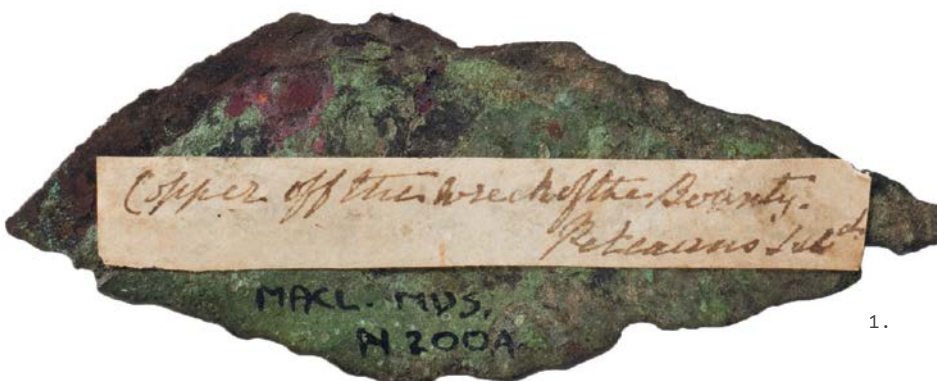 Copper off the wreck of the Bounty.
Petcaans Isld
MACL. MUS.
N200A.
1.